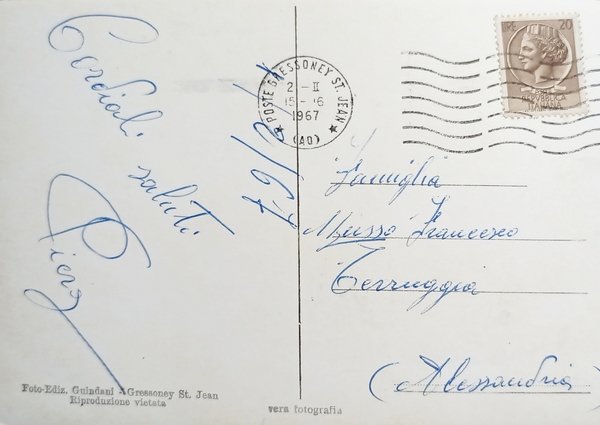 Cordiali saluti
Piero
1/2/67
POSTE GRESSONEY ST. JEAN
2-II
15-16
1967
(AO)
LIRE 20
REPUBBLICA
ITALIANA
Famiglia
Musso Francesco
Terruggia
(Alessandria)
Foto-Ediz. Guindani - Gressoney St. Jean
Riproduzione vietata
vera fotografia